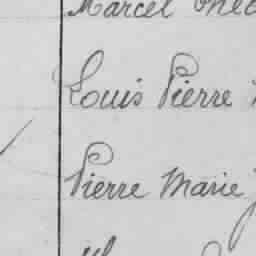 Marcel
Louis Pierre
Pierre Marie